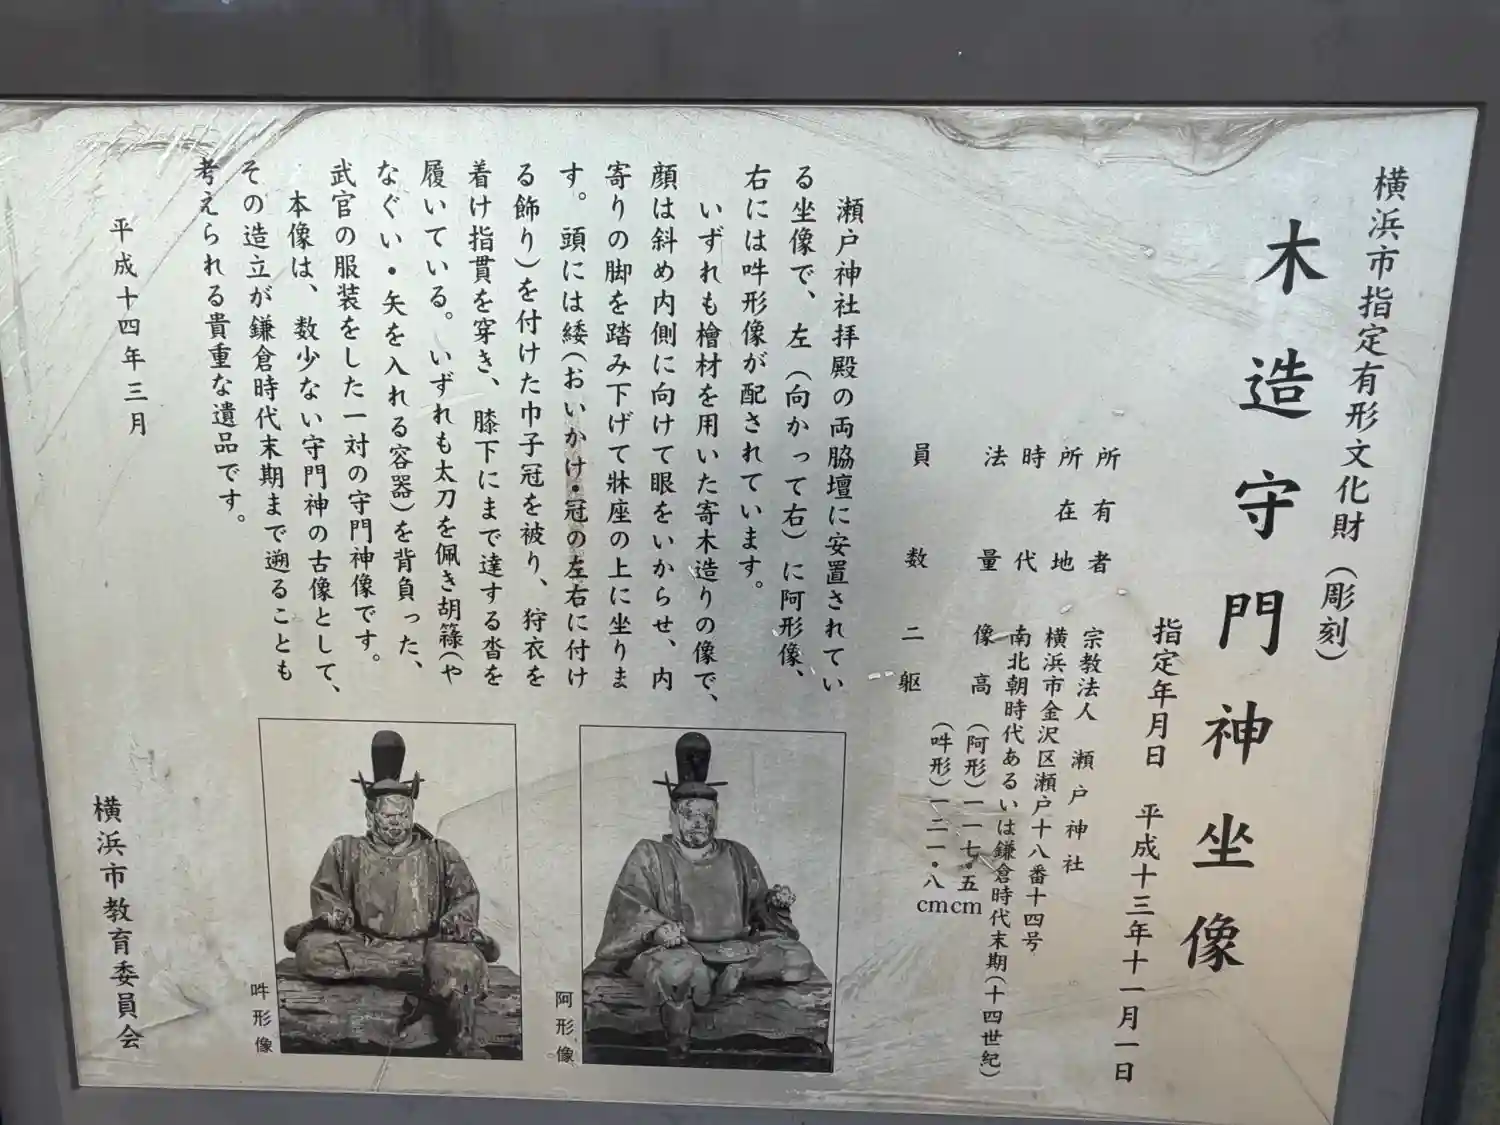 横浜市指定有形文化財（彫刻）
木造守門神坐像
指定年月日　平成十三年十一月一日
所有者　宗教法人　瀬戸神社
所在地　横浜市金沢区瀬戸十八番十四号
時代　南北朝時代あるいは鎌倉時代末期（十四世紀）
法量　像高　（阿形）一一七・五cm
（吽形）一二一・八cm
員数　二躯
瀬戸神社拝殿の両脇壇に安置されてい
る坐像で、左（向かって右）に阿形像、
右には吽形像が配されています。
いずれも檜材を用いた寄木造りの像で、
顔は斜め内側に向けて眼をいからせ、内
寄りの脚を踏み下げて牀座の上に坐りま
す。頭には緌（おいかけ・冠の左右に付け
る飾り）を付けた巾子冠を被り、狩衣を
着け指貫を穿き、膝下にまで達する沓を
履いている。いずれも太刀を佩き胡籙（や
なぐい・矢を入れる容器）を背負った、
武官の服装をした一対の守門神像です。
本像は、数少ない守門神の古像として、
その造立が鎌倉時代末期まで遡ることも
考えられる貴重な遺品です。
平成十四年三月
横浜市教育委員会
阿形像
吽形像